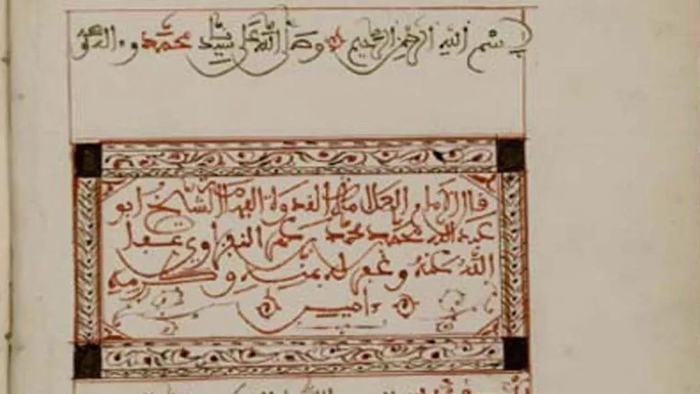 بسم الله الرحمن الرحيم وصلى الله على سيدنا محمد وءاله
قال الامام العلامة القدوة الفهامة الشيخ ابو
عبد الله محمد بن محمد عفا
الله عنه وغفر له بمنه وكرمه
ءامين